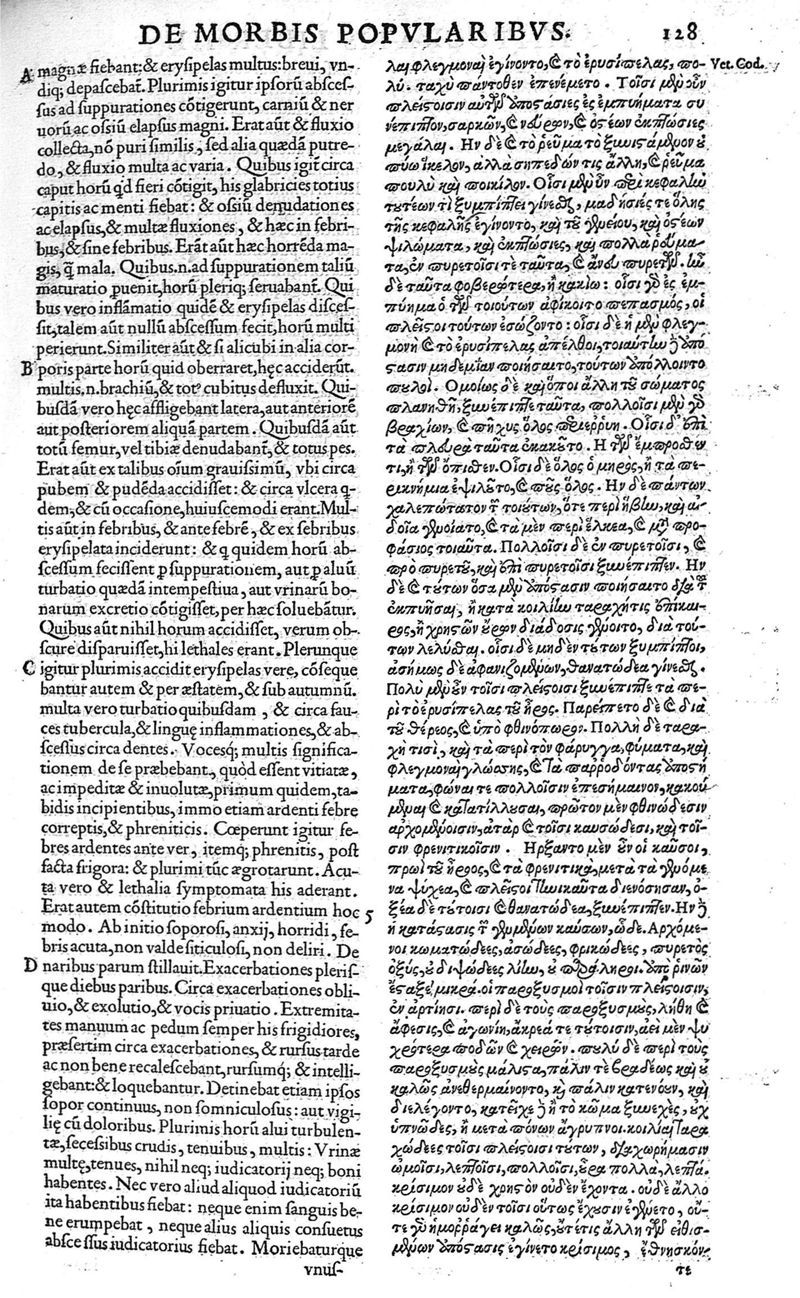 DE MORBIS POPVLARIBVS. 128
A magnæ fiebant: & erysipelas multus: breui, vn-
diq; depascebāt. Plurimis igitur ipsorū absces-
sus ad suppurationes cōtigerunt, carniū & ner
uorū ac ossiū elapsus magni. Erat aūt & fluxio
collecta, nō puri similis, sed alia quædā putre-
do, & fluxio multa ac varia. Quibus igit̄ circa
caput horū qd fieri cōtigit, his glabricies totius
capitis ac menti fiebat: & ossiū denudationes
ac elapsus, & multæ fluxiones, & hæc in febri-
bus, & sine febribus. Erāt aūt hæc horrēda ma-
gis, q̄ mala. Quibus.n.ad suppurationem taliū
maturatio puenit, horū pleriq; seruabant̄. Qui
bus vero inflāmatio quidē & erysipelas disces-
sit, talem aūt nullū abscessum fecit, horū multi
perierunt. Similiter aūt & si alicubi in alia cor-
B poris parte horū quid oberraret, hęc acciderūt.
multis.n.brachiū, & totꝰ cubitus defluxit. Qui-
busdā vero hęc affligebant latera, aut anteriorē
aut posteriorem aliquā partem. Quibusdā aūt
totū femur, vel tibiæ denudabant̄, & totus pes.
Erat aūt ex talibus oīum grauissimū, vbi circa
pubem & pudēda accidisset: & circa vlcera q-
dem, & cū occasione, huiuscemodi erant. Mul-
tis aūt in febribus, & ante febrē, & ex febribus
erysipelata inciderunt: & q quidem horū ab-
scessum fecissent p suppurationem, aut p aluū
turbatio quædā intempestiua, aut vrinarū bo-
narum excretio cōtigisset, per hæc soluebātur.
Quibus aūt nihil horum accidisset, verum ob-
scure disparuisset, hi lethales erant. Plerunque
C igitur plurimis accidit erysipelas vere, cōseque
bantur autem & per æstatem, & sub autumnū.
multa vero turbatio quibusdam, & circa fau-
ces tubercula, & linguę inflammationes, & ab-
scessus circa dentes. Vocesq; multis significa-
tionem de se præbebant, quòd essent vitiatæ,
ac impeditæ & inuolutæ, primum quidem, ta-
bidis incipientibus, immo etiam ardenti febre
correptis, & phreniticis. Cœperunt igitur fe-
bres ardentes ante ver, itemq; phrenitis, post
facta frigora: & plurimi tūc ægrotarunt. Acu-
ta vero & lethalia symptomata his aderant.
Erat autem cōstitutio febrium ardentium hoc 5
modo. Ab initio soporosi, anxij, horridi, fe-
bris acuta, non valde siticulosi, non deliri. De
D naribus parum stillauit. Exacerbationes pleris-
que diebus paribus. Circa exacerbationes obli-
uio, & exolutio, & vocis priuatio. Extremita-
tes manuum ac pedum semper his frigidiores,
præsertim circa exacerbationes, & rursus tarde
ac non bene recalescebant, rursumq; & intelli-
gebant: & loquebantur. Detinebat etiam ipsos
sopor continuus, non somniculosus: aut vigi-
lię cū doloribus. Plurimis horū alui turbulen-
tæ, secessibus crudis, tenuibus, multis: Vrinæ
multę, tenues, nihil neq; iudicatorij neq; boni
habentes. Nec vero aliud aliquod iudicatoriū
ita habentibus fiebat: neque enim sanguis be-
ne erumpebat, neque alius aliquis consuetus
abscessus iudicatorius fiebat. Moriebaturque
vnus-
λαι φλεγμοναὶ ἐγίνοντο, καὶ τὸ ἐρυσίπελας, πο- Vet. Cod.
λύ. ταχὺ πάντοθεν ἐπενέμετο. Τοῖσι μὲν οὖν
πλείστοισιν αὐτῶν ἀποστάσιες ἐς ἐμπυήματα συ
νέπιπτον, σαρκῶν, καὶ νεύρων, καὶ ὀστέων ἐκπτώσιες
μεγάλαι. Ην δὲ καὶ τὸ ῥεῦμα τὸ ξυνιστάμενον οὐ
πύῳ ἴκελον, ἀλλὰ σηπεδών τις ἄλλη, καὶ ῥεῦμα
πουλὺ καὶ ποικίλον. Οἷσι μὲν οὖν περὶ κεφαλὴν
τουτέων τὶ ξυμπίπτει γίνεσθαι, μαδήσιές τε ὅλης
τῆς κεφαλῆς ἐγίνοντο, καὶ τοῦ γενείου, καὶ ὀστέων
ψιλώματα, καὶ ἐκπτώσιες, καὶ πολλὰ ῥεύμα-
τα, ἐν πυρετοῖσί τε ταῦτα, καὶ ἄνευ πυρετῶν. ἦν
δὲ ταῦτα φοβερώτερα, ἢ κακίω: οἷσι γὰρ ἐς ἐμ-
πύημα ὁ τῶν τοιούτων ἀφίκοιτο πεπασμός, οἱ
πλεῖστοι τούτων ἐσώζοντο: οἷσι δὲ ἡ μὲν φλεγ-
μονὴ καὶ τὸ ἐρυσίπελας ἀπέλθοι, τοιαύτην δὲ ἀπό
στασιν μηδεμίαν ποιήσαιτο, τούτων ἀπόλλοιντο
πολλοί. Ομοίως δὲ καὶ ὅποι ἄλλη τοῦ σώματος
πλανηθῇ, ξυνέπιπτε ταῦτα, πολλοῖσι μὲν γὰρ
βραχίων, καὶ πῆχυς ὅλος περιερρύη. Οἷσι δ' ἐπὶ
τὰ πλευρὰ ταῦτα ἐκακεῖτο. Η τῶν ἔμπροσθέν
τι, ἢ τῶν ὄπισθεν. Οἷσι δὲ ὅλος ὁ μηρὸς, ἢ τὰ πε-
ρικνήμια ἐψιλοῦτο, καὶ ποῦς ὅλος. Ην δὲ πάντων
χαλεπώτατον τῶν τοιούτων, ὅτε περὶ ἥβην, καὶ αἰ-
δοῖα γενοίατο, καὶ τὰ μὲν περὶ ἕλκεα, καὶ μετὰ προ-
φάσιος τοιαῦτα. Πολλοῖσι δὲ ἐν πυρετοῖσι, καὶ
πρὸ πυρετοῦ, καὶ ἐπὶ πυρετοῖσι ξυνέπιπτεν. Ην
δὲ καὶ τούτων ὅσα μὲν ἀπόστασιν ποιήσαιτο διὰ τοῦ
ἐκπυῆσαι, ἢ κατὰ κοιλίην ταραχήτις ἐπίκαι-
ρος, ἢ χρηστῶν οὔρων διάδοσις γένοιτο, διὰ τού-
των λελύσθαι. οἷσι δὲ μηδὲν τούτων ξυμπίπτοι,
ἀσήμως δὲ ἀφανιζομένων, θανατώδεα γίνεσθαι.
Πολὺ μὲν οὖν τοῖσι πλείστοισι ξυνέπιπτε τὰ πε-
ρὶ τὸ ἐρυσίπελας τοῦ ἦρος. Παρείπετο δὲ καὶ διὰ
τοῦ θέρεος, καὶ ὑπὸ φθινόπωρον. Πολλὴ δὲ ταρα-
χή τισὶ, καὶ τὰ περὶ τὸν φάρυγγα, φύματα, καὶ
φλεγμοναὶ γλώσσης, καὶ τὰ παρ' ὀδόντας ἀποστή
ματα, φωναί τε πολλοῖσιν ἐπεσήμαινον, κακού
μεναι καὶ κατίλλουσαι, πρῶτον μὲν φθινώδεσιν
ἀρχομένοισιν, ἀτὰρ καὶ τοῖσι καυσώδεσι, καὶ τοῖ-
σιν φρενιτικοῖσιν. Ηρξαντο μὲν οὖν οἱ καῦσοι,
πρωῒ τοῦ ἦρος, καὶ τὰ φρενιτικὰ, μετὰ τὰ γενόμε
να ψύχεα, καὶ πλεῖστοι τηνικαῦτα διενόσησαν, ὀ-
ξέα δὲ τούτοισι καὶ θανατώδεα, ξυνέπιπτεν. Ην δὲ
ἡ κατάστασις τῶν γενομένων καύσων, ὧδε. Αρχόμε-
νοι κωματώδεες, ἀσώδεες, φρικώδεες, πυρετὸς
ὀξὺς, οὐ διψώδεες λίην, οὐ παράληροι. ἀπὸ ῥινῶν
ἔσταξε μικρά. οἱ παροξυσμοὶ τοῖσιν πλείστοισιν,
ἐν ἀρτίῃσι. περὶ δὲ τοὺς παροξυσμοὺς, λήθη καὶ
ἄφεσις, καὶ ἀγωνίη, ἄκρεά τε τούτοισιν, αἰεὶ μὲν ψυ
χρότερα ποδῶν καὶ χειρῶν. πουλὺ δὲ περὶ τοὺς
παροξυσμοὺς μάλιστα, πάλιν τε βραδέως καὶ οὐ
καλῶς ἀνεθερμαίνοντο, καὶ πάλιν κατενόουν, καὶ
διελέγοντο, κατεῖχε δὲ ἢ τὸ κῶμα ξυνεχὲς, οὐχ
ὑπνῶδες, ἢ μετὰ πόνων ἄγρυπνοι. κοιλίαι ταρα
χώδεες τοῖσι πλείστοισι τούτων, διαχωρήμασιν
ὠμοῖσι, λεπτοῖσι, πολλοῖσι, οὖρα πολλὰ, λεπτὰ.
κρίσιμον οὐδὲ χρηστὸν οὐδὲν ἔχοντα. οὐδὲ ἄλλο
κρίσιμον οὐδὲν τοῖσι οὕτως ἔχουσιν ἐγένετο, οὔ-
τε γὰρ ᾑμορράγει καλῶς, οὔτέ τις ἄλλη τῶν εἰθισ-
μένων ἀπόστασις ἐγίνετο κρίσιμος, ἔθνησκόν
τε